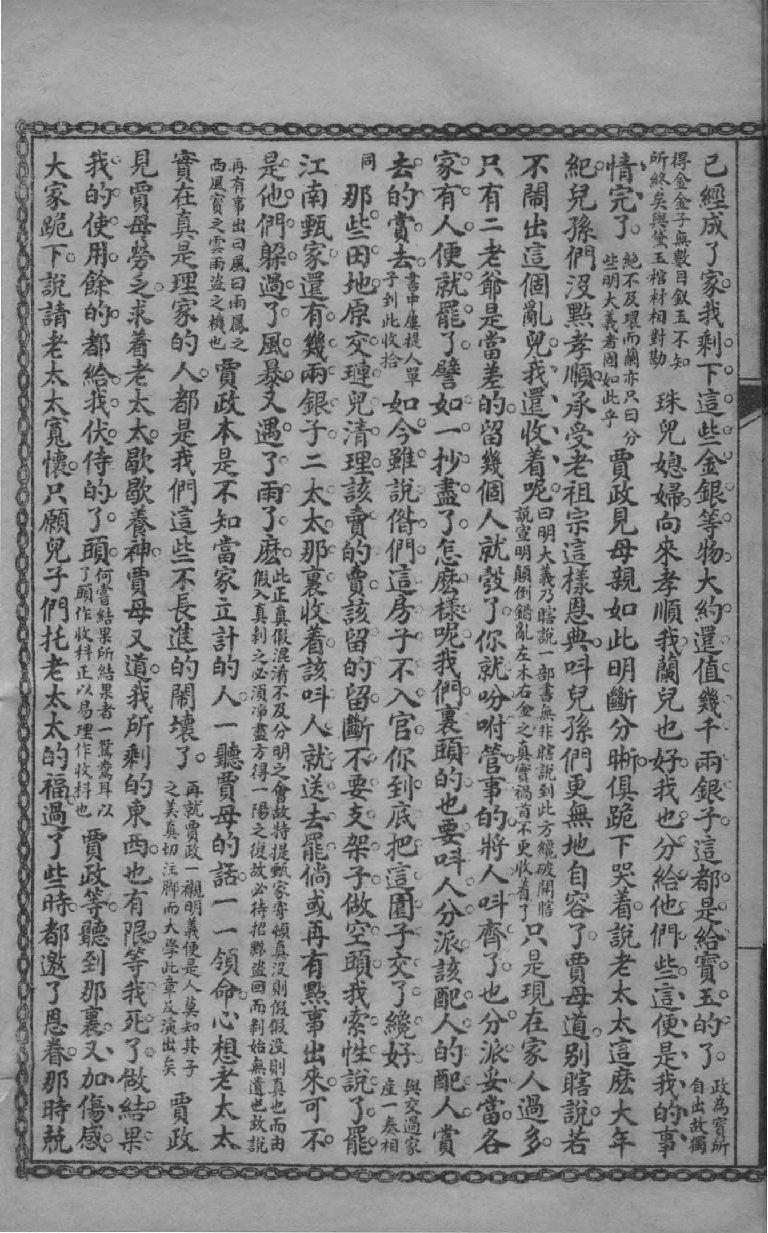 已經成了家我剩下這些金銀等物大約還值幾千兩銀子這都是給寶玉的了政為寶所自出故獨
得金金子無數目釵玉不知所終矣與黛玉棺材相對勘珠兒媳婦向來孝順我蘭兒也好我也分給他們些這便是我的事
情完了絕不及環而蘭亦只曰分些明大義者固如此乎賈政見母親如此明斷分晣俱跪下哭着說老太太這麽大年
紀兒孫們沒點孝順承受老祖宗這樣恩典呌兒孫們更無地自容了賈母道别瞎說若
不鬧出這個亂兒我還收着呢曰明大義乃瞎說一部書無非瞎說到此方纔破開瞎說宣明顛倒錯亂左木右金之真實禍首不更收着了只是現在家人過多
只有二老爺是當差的留幾個人就彀了你就吩咐管事的將人呌齊了也分派妥當各
家有人便就罷了譬如一抄盡了怎麽樣呢我們裏頭的也要呌人分派該配人的配人賞
去的賞去書中屢提人單子到此收拾如今雖說偺們這房子不入官你到底把這園子交了纔好與交過家產一奏相
同那些田地原交璉兒清理該賣的賣該留的留斷不要支架子做空頭我索性說了罷
江南甄家還有幾兩銀子二太太那裏收着該呌人就送去罷倘或再有點事出來可不
是他們躱過了風暴又遇了雨了麽此正真假混淆不及分明之會故特提甄家寄頓真沒則假假沒則真也而由假入真剝之必須淨盡方得一陽之復故必待招夥盜回而剝始無遺也故說
再有事出曰風曰雨屬之西風實之雲雨盜之機也賈政本是不知當家立計的人一聽賈母的話一一領命心想老太太
實在真是理家的人都是我們這些不長進的鬧壞了再就賈政一襯明義便是人莫知其子之美真切注脚而大學此章反演出矣賈政
見賈母勞乏求着老太太歇歇養神賈母又道我所剩的東西也有限等我死了做結果
我的使用餘的都給我伏侍的了頭何嘗結果所結果者一鴛鴦耳以了頭作收科正以易理作收科也賈政等聽到那裏又加傷感
大家跪下說請老太太寬懷只願兒子們托老太太的福過了些時都邀了恩眷那時兢